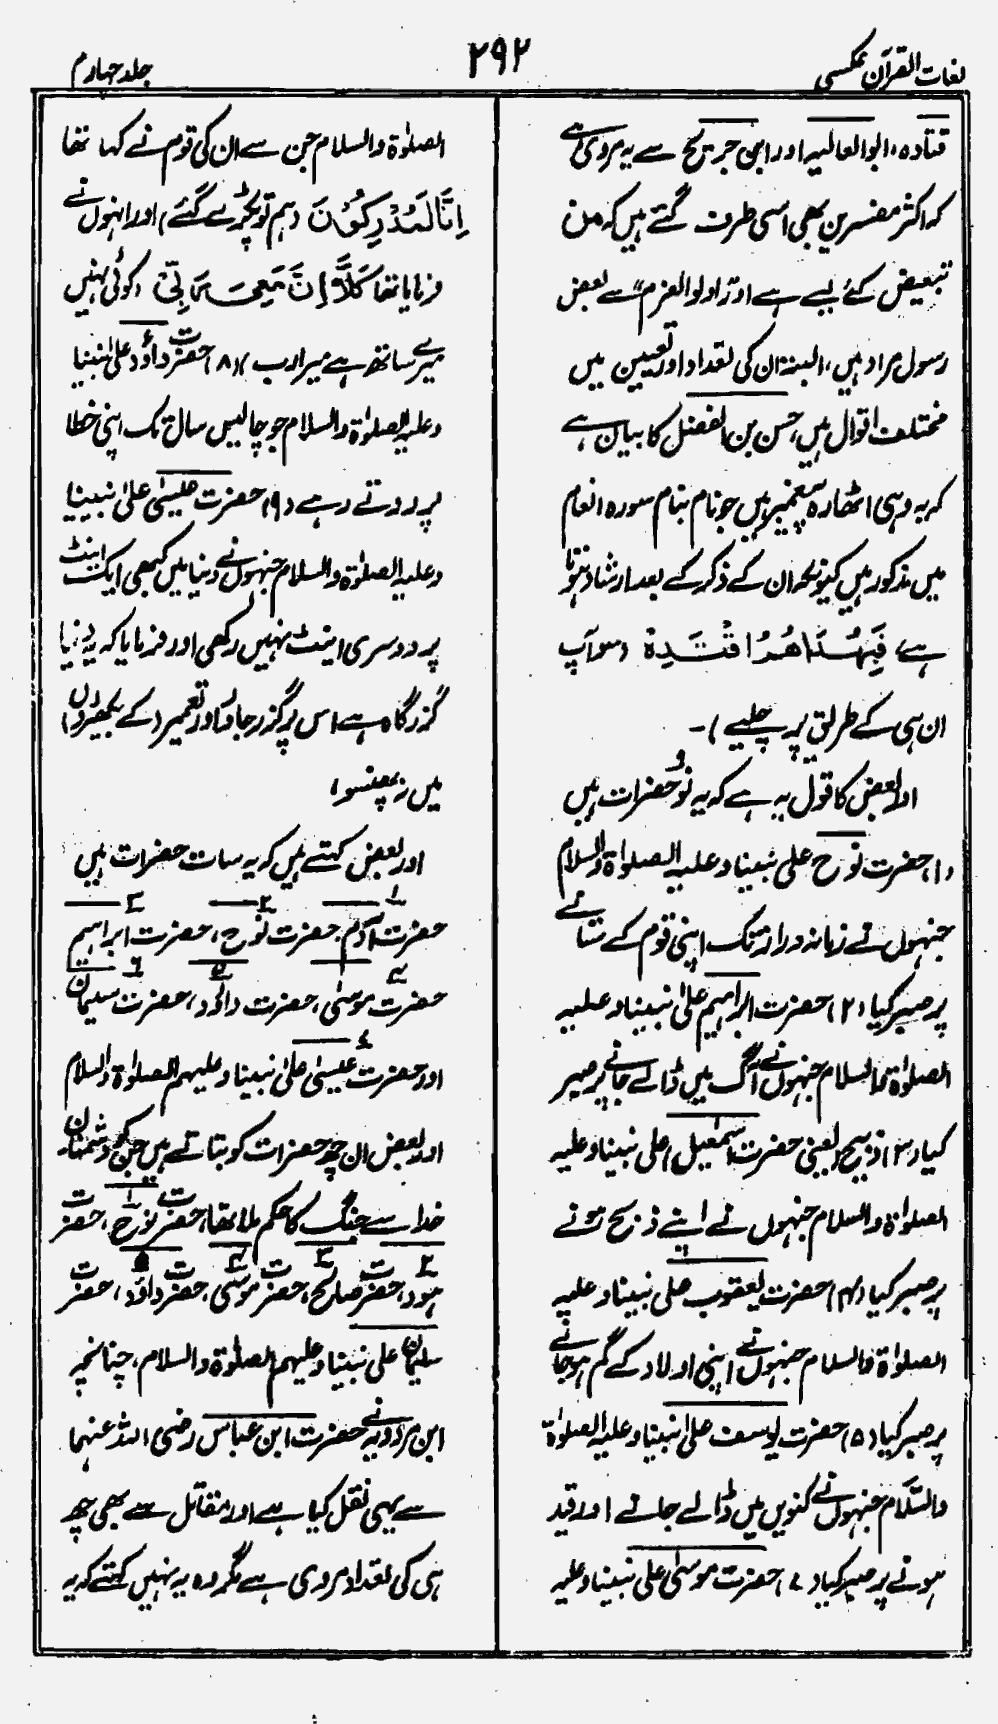 لغات القرآن عکسی
۲۹۲
جلد چہارم
قتادہ، ابوالعالیہ اور ابن جریج سے یہ مروی ہے
کہ اکثر مفسرین بھی اسی طرف گئے ہیں کہ من
تبعیض کے لیے ہے اور اولوالعزم" سے بعض
رسول مراد ہیں، البتہ ان کی تعداد اور تعیین میں
مختلف اقوال ہیں، حسن بن الفضل کا بیان ہے
کہ یہ وہی اٹھارہ پیغمبر ہیں جو نام بنام سورہ انعام
میں مذکور ہیں کیونکہ ان کے ذکر کے بعد ارشاد ہوتا
ہے، فَبِهُدَاهُمُ اقْتَدِهْ (سو آپ
ان ہی کے طریق پر چلیے)۔
اور بعض کا قول یہ ہے کہ یہ نو حضرات ہیں
(۱) حضرت نوح علی نبینا و علیہ الصلوٰۃ والسلام
جنہوں نے زمانہ دراز تک اپنی قوم کے ستائے
پر صبر کیا (۲) حضرت ابراہیم علیٰ نبینا و علیہ
الصلوٰۃ والسلام جنہوں نے آگ میں ڈالے جانے پر صبر
کیا (۳) ذبیح (یعنی حضرت اسمٰعیل) علی نبینا و علیہ
الصلوٰۃ والسلام جنہوں نے اپنے ذبح ہونے
پر صبر کیا (۴) حضرت یعقوب علی نبینا و علیہ
الصلوٰۃ والسلام جنہوں نے اپنی اولاد کے گم ہو جانے
پر صبر کیا (۵) حضرت یوسف علیٰ نبینا و علیہ الصلوٰۃ
والسّلام جنہوں نے کنویں میں ڈالے جانے اور قید
ہونے پر صبر کیا (۷) حضرت موسیٰ علی نبینا و علیہ
الصلوٰۃ والسلام جن سے ان کی قوم نے کہا تھا
اِنَّا لَمُدْرَكُوْنَ (ہم تو پکڑے گئے) اور انہوں نے
فرمایا تھا كَلَّا اِنَّ مَعِيَ رَبِّيْ (کوئی نہیں
میرے ساتھ ہے میرا رب) (۸) حضرت داؤد علیٰ نبینا
و علیہ الصلوٰۃ والسلام جو چالیس سال تک اپنی خطا
پر روتے رہے (۹) حضرت عیسیٰ علیٰ نبینا
و علیہ الصلوٰۃ والسلام جنہوں نے دنیا میں کبھی ایک اینٹ
پر دوسری اینٹ نہیں رکھی اور فرمایا کہ یہ دنیا
گزر گاہ ہے اس پر گزر جاؤ اور تعمیر (کے بکھیڑوں)
میں نہ پھنسو،
اور بعض کہتے ہیں کہ یہ سات حضرات ہیں
حضرت آدم ۱، حضرت نوح ۲، حضرت ابراہیم ۳
حضرت موسیٰ ۴، حضرت داؤد ۵، حضرت سلیمان ۶
اور حضرت عیسیٰ ۷ علیٰ نبینا و علیہم الصلوٰۃ والسلام
اور بعض ان چھ حضرات کو بتاتے ہیں جن کو دشمنان
خدا سے جنگ کا حکم ملا تھا، حضرت نوح ۱، حضرت
ہود ۲، حضرت صالح ۳، حضرت موسیٰ ۴، حضرت داؤد ۵، حضرت
سلیمان علی نبینا و علیہم الصلوٰۃ والسلام، چنانچہ
ابن مردویہ نے حضرت ابن عباس رضی اللہ عنہما
سے یہی نقل کیا ہے اور مقاتل سے بھی چھ
ہی کی تعداد مروی ہے مگر وہ یہ نہیں کہتے کہ یہ